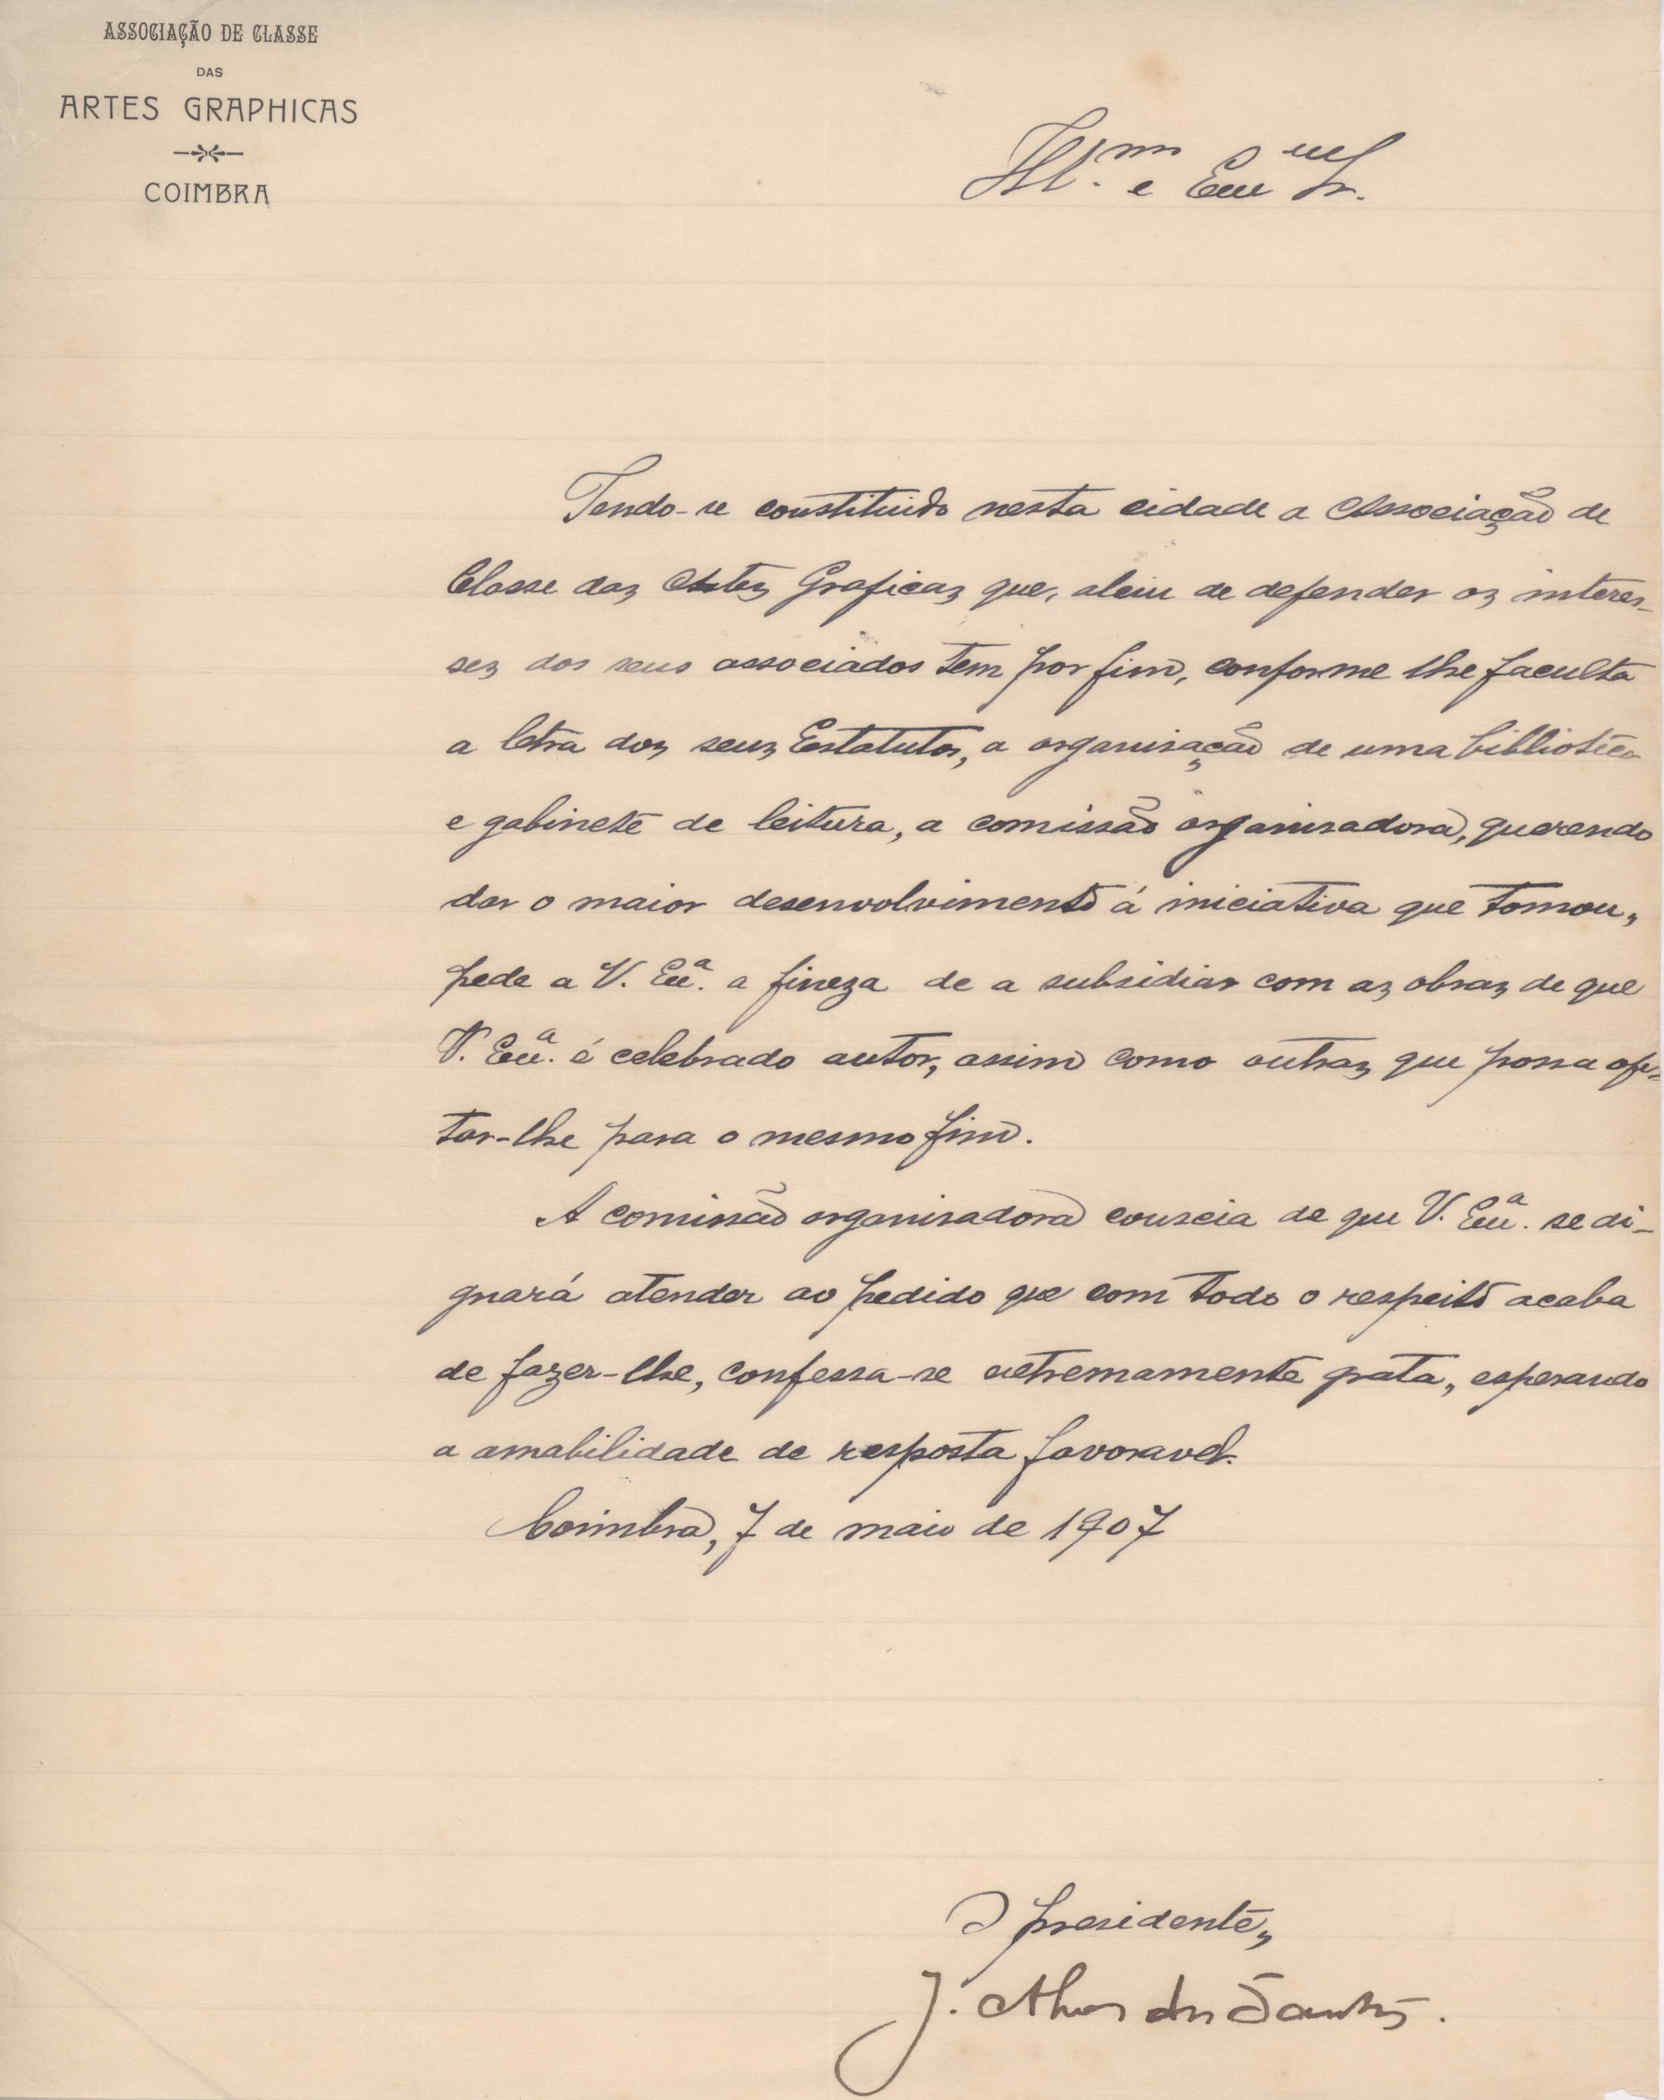 ASSOCIAÇÃO DE CLASSE
DAS
ARTES GRAPHICAS
COIMBRA
Ill.mo e Exmo Sr.
Tendo-se constituido nesta cidade a Associação de
Classe das Artes Graficas que, alem de defender os interes-
ses dos seus associados tem por fim, conforme lhe faculta
a letra dos seus Estatutos, a organisação de uma bibliotéca
e gabinete de leitura, a comissão organisadora, querendo
dar o maior desenvolvimento á iniciativa que tomou,
pede a V. Exª. a fineza de a subsidiar com as obras de que
V. Exª. é celebrado autor, assim como outras que possa ofe-
tar-lhe para o mesmo fim.
A comissão organisadora conscia de que V. Exª. se di-
gnará atender ao pedido que com todo o respeito acaba
de fazer-lhe, confessa-se extremamente grata, esperando
a amabilidade de resposta favoravel.
Coimbra, 7 de maio de 1907
O presidente,
J. Alves dos Santos.